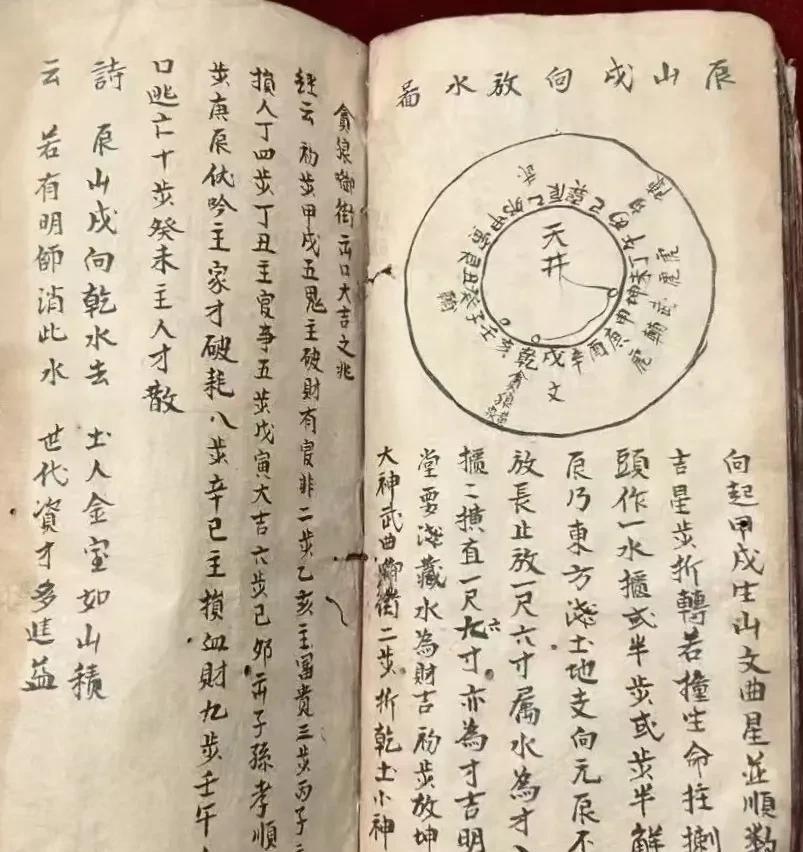 辰山戌向放水啚
天井
巽辰乙卯甲寅艮丑癸子壬亥
乾戌辛酉庚申坤未丁午丙巳
文
貪狼
武
向起甲戌生山文曲星並順数
吉星步折轉若撞生命拄
頭作一水櫃或半步或步半觧
辰乃東方淺土地支向元辰不
放長止放一尺六寸属水為才
櫃二横直一尺九六寸亦為才吉明
堂要淺藏水為財吉初步放坤
大神武曲御街二步折乾土小神
貪狼御街出口大吉之兆
經云 初步甲戌五鬼主破財有官非二步乙亥主富貴三步丙子
損人丁四步丁丑主官事五步戊寅大吉六步己卯出子孫孝順
步庚辰伏吟主家才破耗八步辛巳主損血財九步壬午
口逃亡十步癸未主人才散
詩 辰山戌向乾水去 土人金宝如山積
云 若有明師消此水 世代資才多進益